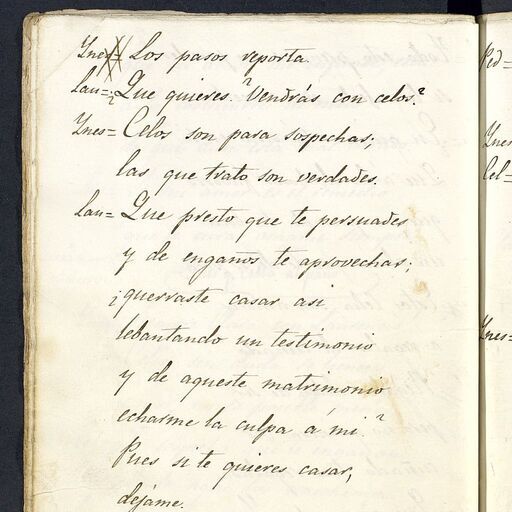 Ynes= Los pasos reporta.
Lau= ¿Que quieres? Vendrás con celos?
Ynes= Celos son para sospechas;
las que trato son verdades.
Lau= Que presto que te persuades
y de engaños te aprovechas;
¿querraste casar asi
lebantando un testimonio
y de aqueste matrimonio
echarme la culpa á mi?
Pues si te quieres casar,
dejame.
Ped=
Ynes
Cel=
Ynes=